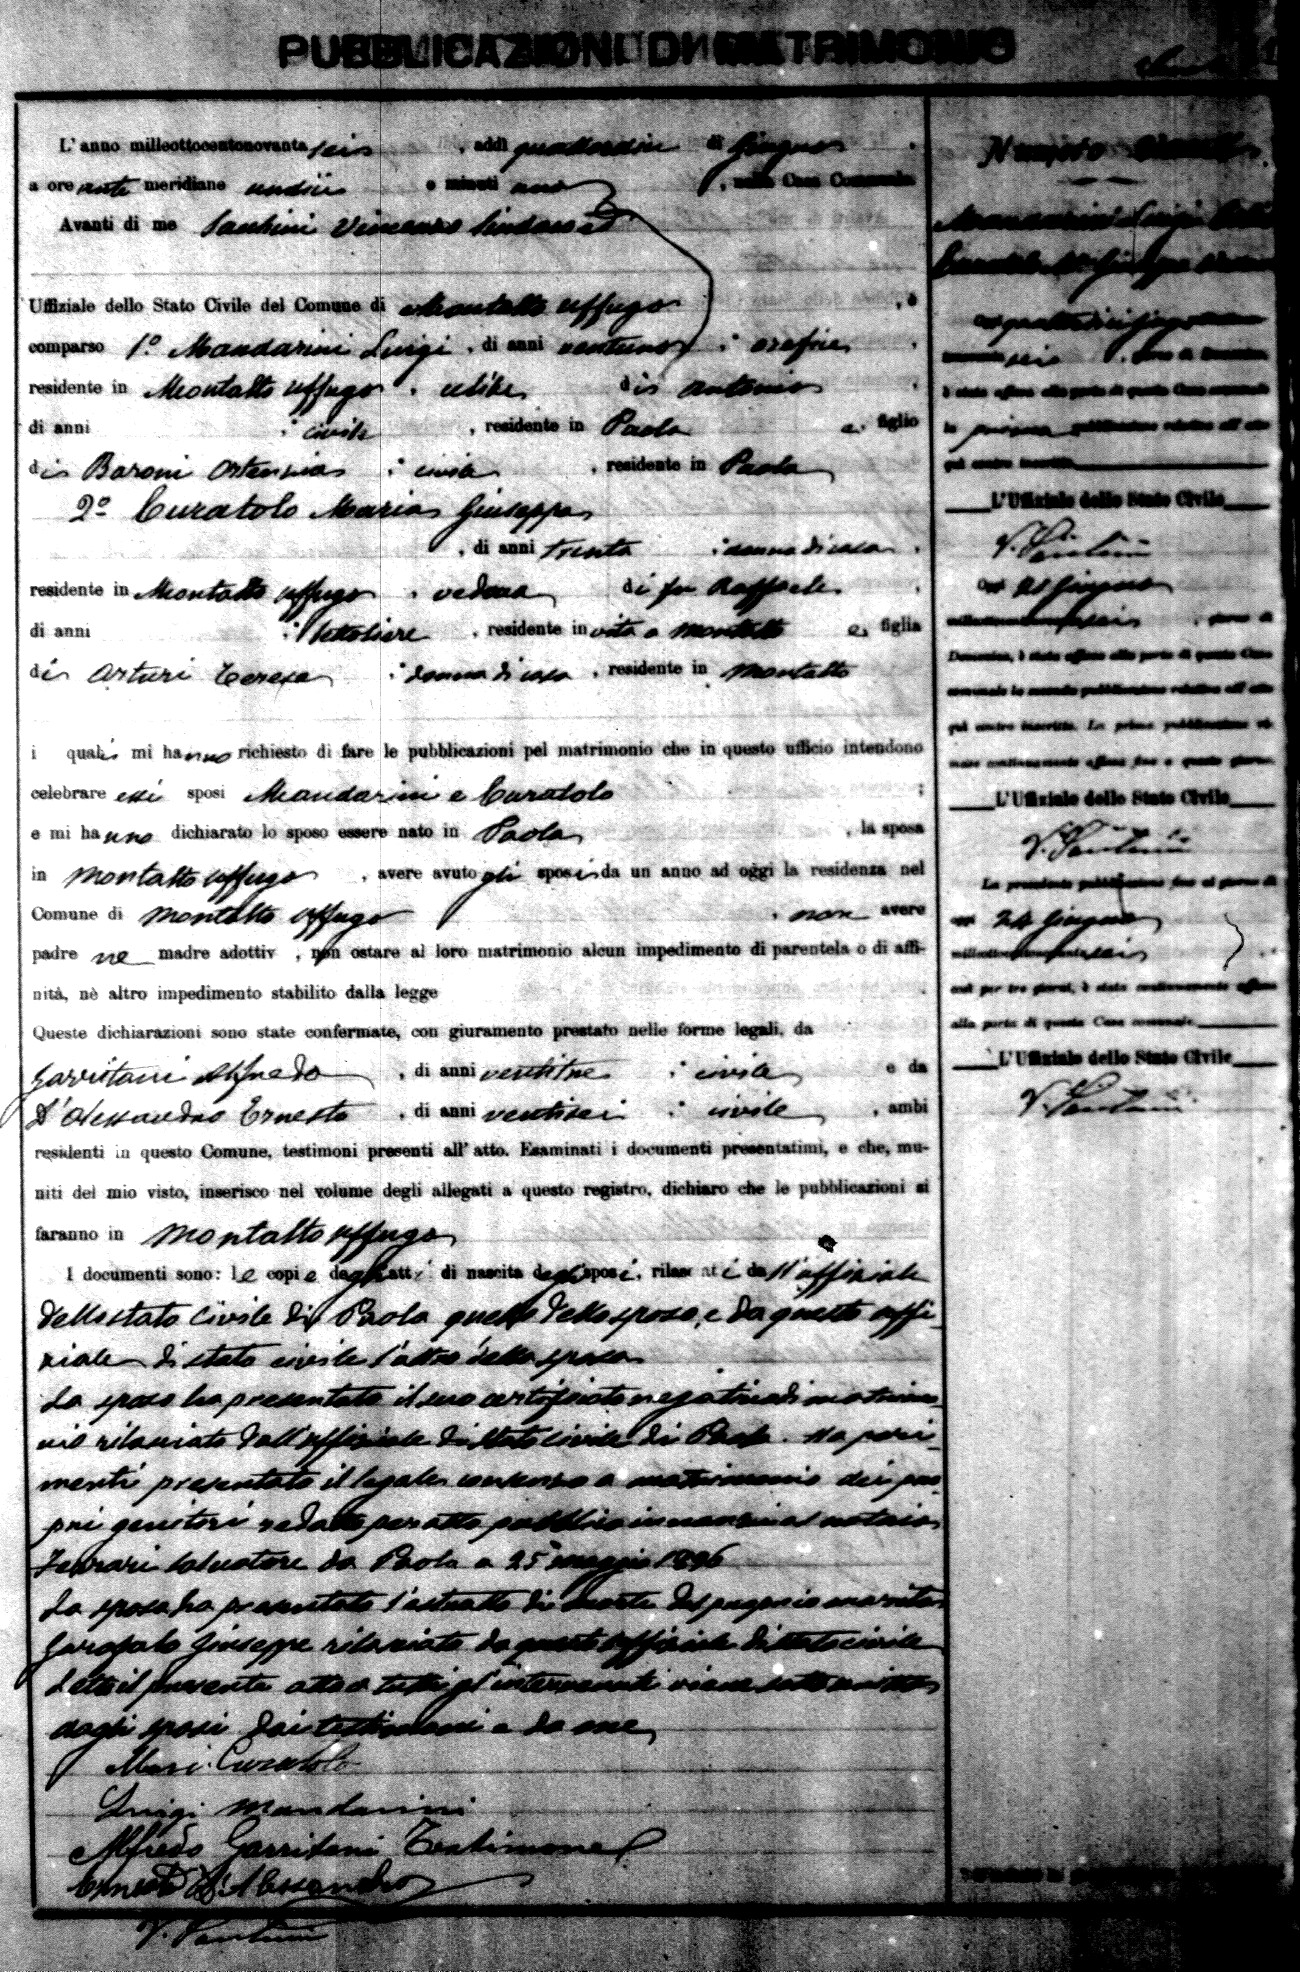 PUBBLICAZIONI DI MATRIMONIO
L'anno milleottocentonovanta sei , addì quattordici di Giugno
a ore ante meridiane undici e minuti uno , nella Casa Comunale
Avanti di me Santini Vincenzo Sindaco
Uffiziale dello Stato Civile del Comune di Montalto Uffugo , è
comparso 1.º Mandarini Luigi , di anni ventuno , orefice
residente in Montalto Uffugo , celibe di Antonio
di anni , civile , residente in Paola e figlio
di Baroni Ortensia , civile , residente in Paola
2º Curatolo Maria Giuseppa
, di anni trenta , donna di casa
residente in Montalto Uffugo , vedova di fu Raffaele
di anni , residente in vita a Montalto e figlia
di Arturi Teresa , donna di casa , residente in Montalto
i quali mi hanno richiesto di fare le pubblicazioni pel matrimonio che in questo ufficio intendono
celebrare essi sposi Mandarini e Curatolo ;
e mi hanno dichiarato lo sposo essere nato in Paola , la sposa
in Montalto Uffugo , avere avuto gli sposi da un anno ad oggi la residenza nel
Comune di Montalto Uffugo , non avere
padre ne madre adottiv , non ostare al loro matrimonio alcun impedimento di parentela o di affi-
nità, nè altro impedimento stabilito dalla legge
Queste dichiarazioni sono state confermate, con giuramento prestato nelle forme legali, da
Garritani Alfredo , di anni ventitre , civile e da
D'Alessandro Ernesto , di anni ventisei , civile , ambi
residenti in questo Comune, testimoni presenti all'atto. Esaminati i documenti presentatimi, e che, mu-
niti del mio visto, inserisco nel volume degli allegati a questo registro, dichiaro che le pubblicazioni si
faranno in Montalto Uffugo
I documenti sono: le copie degli atti di nascita degli sposi, rilasciati dall'uffiziale
dello stato civile di Paola quello dello sposo, e da questo uffi-
ziale di stato civile l'altro della sposa
Lo sposo ha presentato il suo certificato negativo di matrimo-
nio rilasciato dall'uffiziale di stato civile di Paola. Ha pari-
menti presentato il legale consenso a matrimonio dei pro-
pri genitori redatto per atto pubblico innanzi al notaio
Ferrari Salvatore da Paola a 25 maggio 1896
La sposa ha presentato l'estratto di morte del marito
Garofalo Giuseppe rilasciato da questo uffiziale di stato civile
Letto il presente atto a tutti gl'intervenuti viene sottoscritto
dagli sposi dai testimoni e da me
Mari. Curatolo
Luigi Mandarini
Alfredo Garritani Testimone
Ernesto D'Alessandro
V. Santini
Numero
Mandarini Luigi
Curatolo M. Giuseppa
Oggi quattordici Giugno
sei
è stata affissa alla porta di questa Casa comunale
la prima pubblicazione relativa all'atto
qui contro inscritto
L'Uffiziale dello Stato Civile
V. Santini
Oggi 21 Giugno
sei , giorno di
Domenica, è stata affissa alla porta di questa Casa
comunale la seconda pubblicazione relativa all'atto
qui contro inscritto. La prima pubblicazione ri-
mase continuamente affissa fino a questo giorno.
L'Uffiziale dello Stato Civile
V. Santini
La precedente pubblicazione fino al giorno di
oggi 24 Giugno
sei
cioè per tre giorni, è stata continuamente affissa
alla porta di questa Casa comunale
L'Uffiziale dello Stato Civile
V. Santini